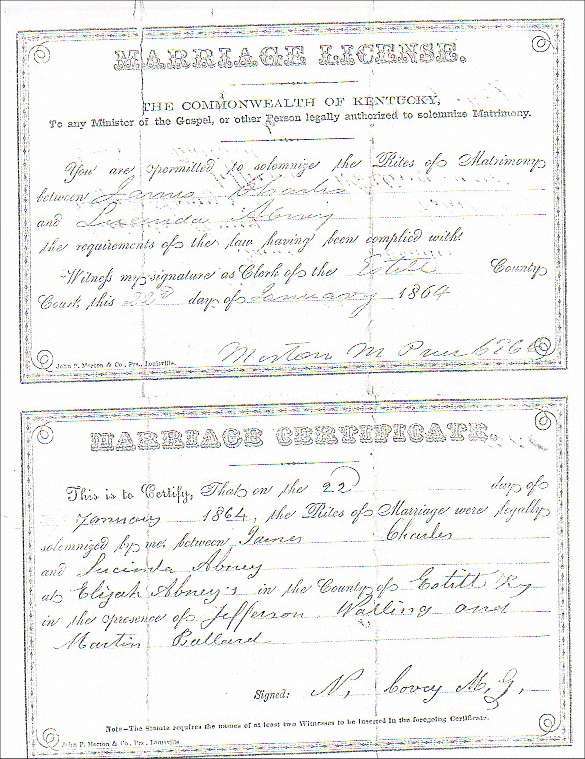 MARRIAGE LICENSE.
THE COMMONWEALTH OF KENTUCKY,
To any Minister of the Gospel, or other Person legally authorized to solemnize Matrimony.
You are permitted to solemnize the Rites of Matrimony
between James Charles
and Lucinda Abney
the requirements of the law having been complied with.
Witness my signature as Clerk of the Estill County
Court, this 22d day of January 1864
Morton M Price
John P. Morton & Co., Prs., Louisville.
MARRIAGE CERTIFICATE.
This is to Certify, That on the 22 day of
January 1864, the Rites of Marriage were legally
solemnized by me, between James Charles
and Lucinda Abney
at Elijah Abney's in the County of Estill Ky
in the presence of Jefferson Walling and
Martin Ballard
Signed: N. Covey M. G.
Note—The Statute requires the names of at least two Witnesses to be inserted in the foregoing Certificate.
John P. Morton & Co., Prs., Louisville